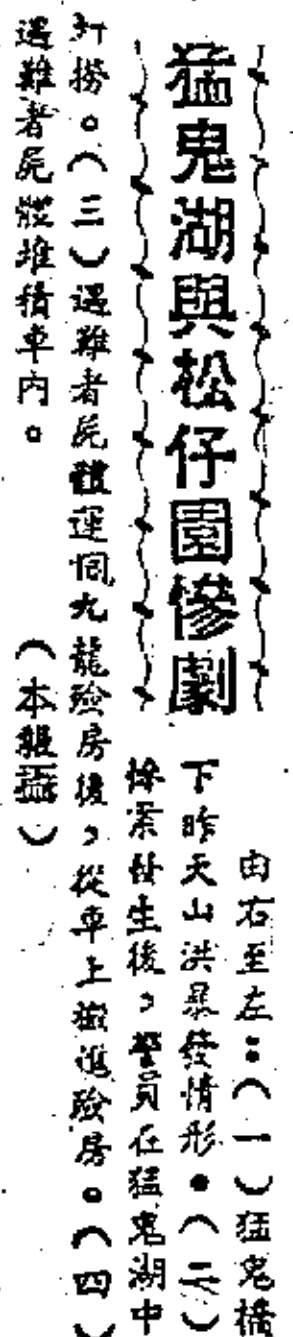 猛鬼湖與松仔園慘劇
由右至左：（一）猛鬼橋
下昨天山洪暴發情形。（二）
慘案發生後，警員在猛鬼湖中
打撈。（三）遇難者屍體運囘九龍殮房後，從車上搬進殮房。（四）
遇難者屍體堆積車内。（本報攝）